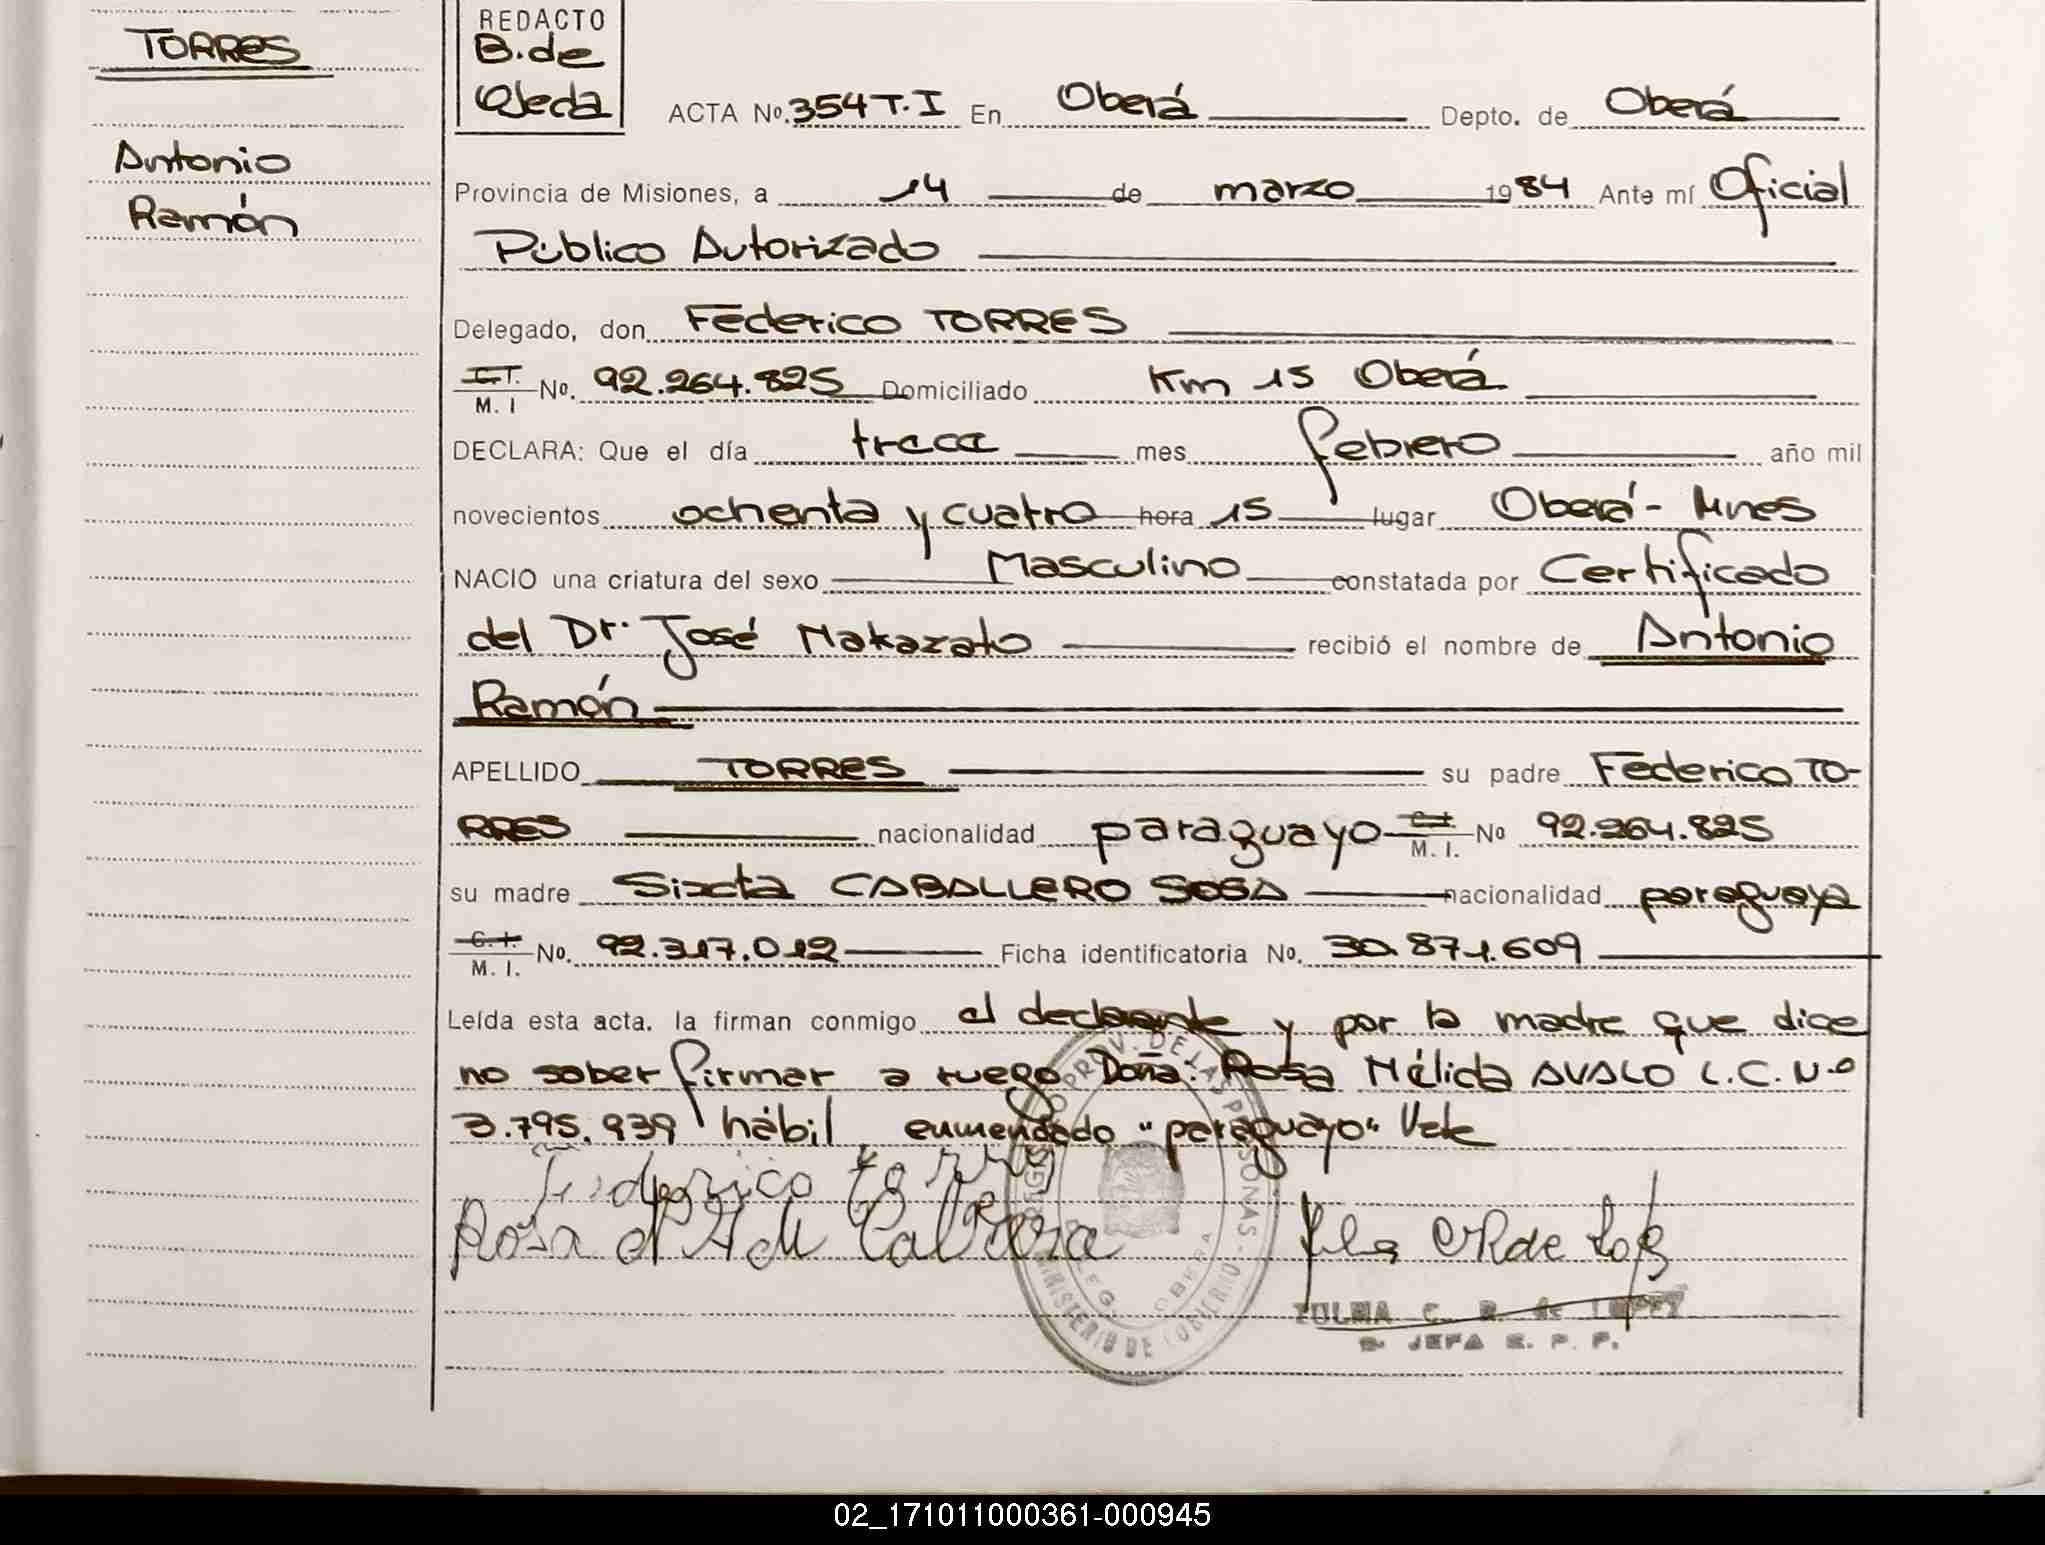 TORRES
Antonio
Ramón
REDACTO
B. de
Ojeda
ACTA No. 354 T. I En Oberá Depto. de Oberá
Provincia de Misiones, a 14 de marzo 1984 Ante mí Oficial
Público Autorizado
Delegado, don Federico TORRES
M. I No. 92.264.825 Domiciliado Km 15 Oberá
DECLARA: Que el día trece mes febrero año mil
novecientos ochenta y cuatro hora 15 lugar Oberá - Mnes
NACIO una criatura del sexo Masculino constatada por Certificado
del Dr. José Nakazato recibió el nombre de Antonio
Ramón
APELLIDO TORRES su padre Federico TO-
RRES nacionalidad paraguayo C.I. M. I. No 92.264.825
su madre Sixta CABALLERO SOSA nacionalidad paraguaya
C. I. M. I. No. 92.317.012 Ficha identificatoria No. 30.871.609
Leída esta acta. la firman conmigo el declarante y por la madre que dice
no saber firmar a ruego Doña: Rosa Nélida AVALO L.C. N.º
3.795.939 hábil enmendado "paraguayo" Vale
Federico torres
Rosa de Cabrera
REGISTRO PROV. DE LAS PERSONAS - MINISTERIO DE GOBIERNO -
DELEG. OBERA
ZULMA C. R. de LOPEZ
JEFA E. P. P.
02_171011000361-000945